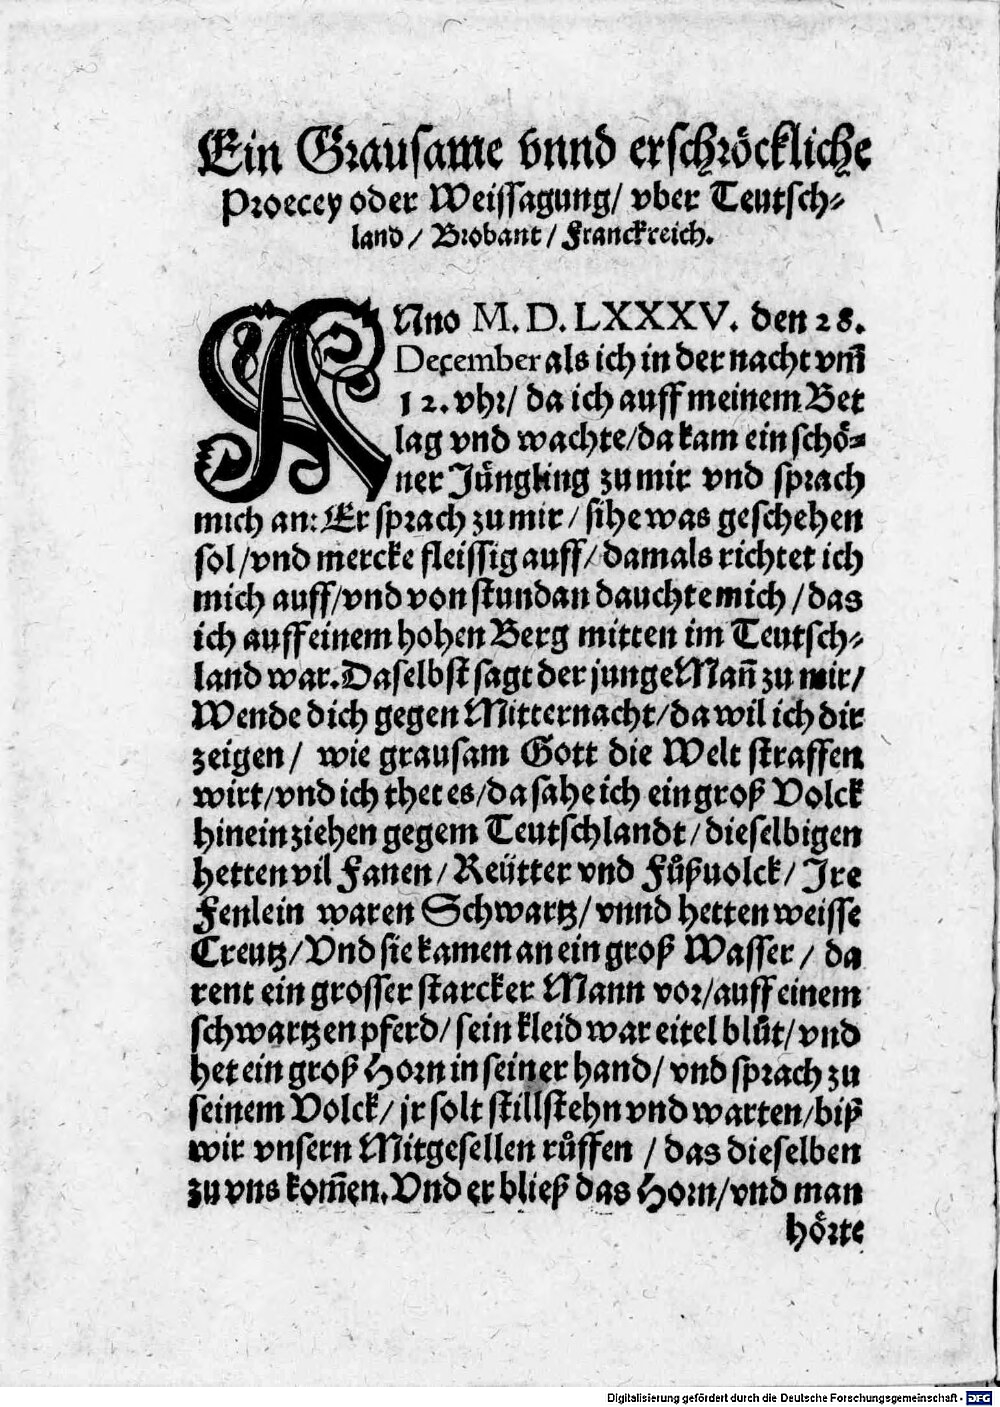 Ein Grausame vnnd erschröckliche
Proecey oder Weissagung/ vber Teutsch-
land / Brobant / Franckreich.
ANno M. D. LXXXV. den 28.
December als ich in der nacht vm̃
12. vhr/ da ich auff meinem Bet
lag vnd wachte/da kam ein schö-
ner Jüngling zu mir vnd sprach
mich an: Er sprach zu mir / sihe was geschehen
sol/vnd mercke fleissig auff/damals richtet ich
mich auff/vnd von stund an dauchte mich /das
ich auff einem hohen Berg mitten im Teutsch-
land war. Daselbst sagt der junge Mañ zu mir/
Wende dich gegen Mitternacht/da wil ich dir
zeigen/ wie grausam Gott die Welt straffen
wirt/vnd ich thet es/da sahe ich ein groß Volck
hinein ziehen gegem Teutschlandt/dieselbigen
hetten vil Fanen/Reütter vnd Fůßuolck/ Ire
Fenlein waren Schwartz/ vnnd hetten weisse
Creutz/Vnd sie kamen an ein groß Wasser / da
rent ein grosser starcker Mann vor/auff einem
schwartzen pferd/sein kleid war eitel blůt/vnd
het ein groß Horn in seiner hand/ vnd sprach zu
seinem Volck/ jr solt stillstehn vnd warten/biß
wir vnsern Mitgesellen růffen / das dieselben
zu vns kom̃en. Vnd er bließ das Horn/vnd man
hörte
Digitalisierung gefördert durch die Deutsche Forschungsgemeinschaft - DFG